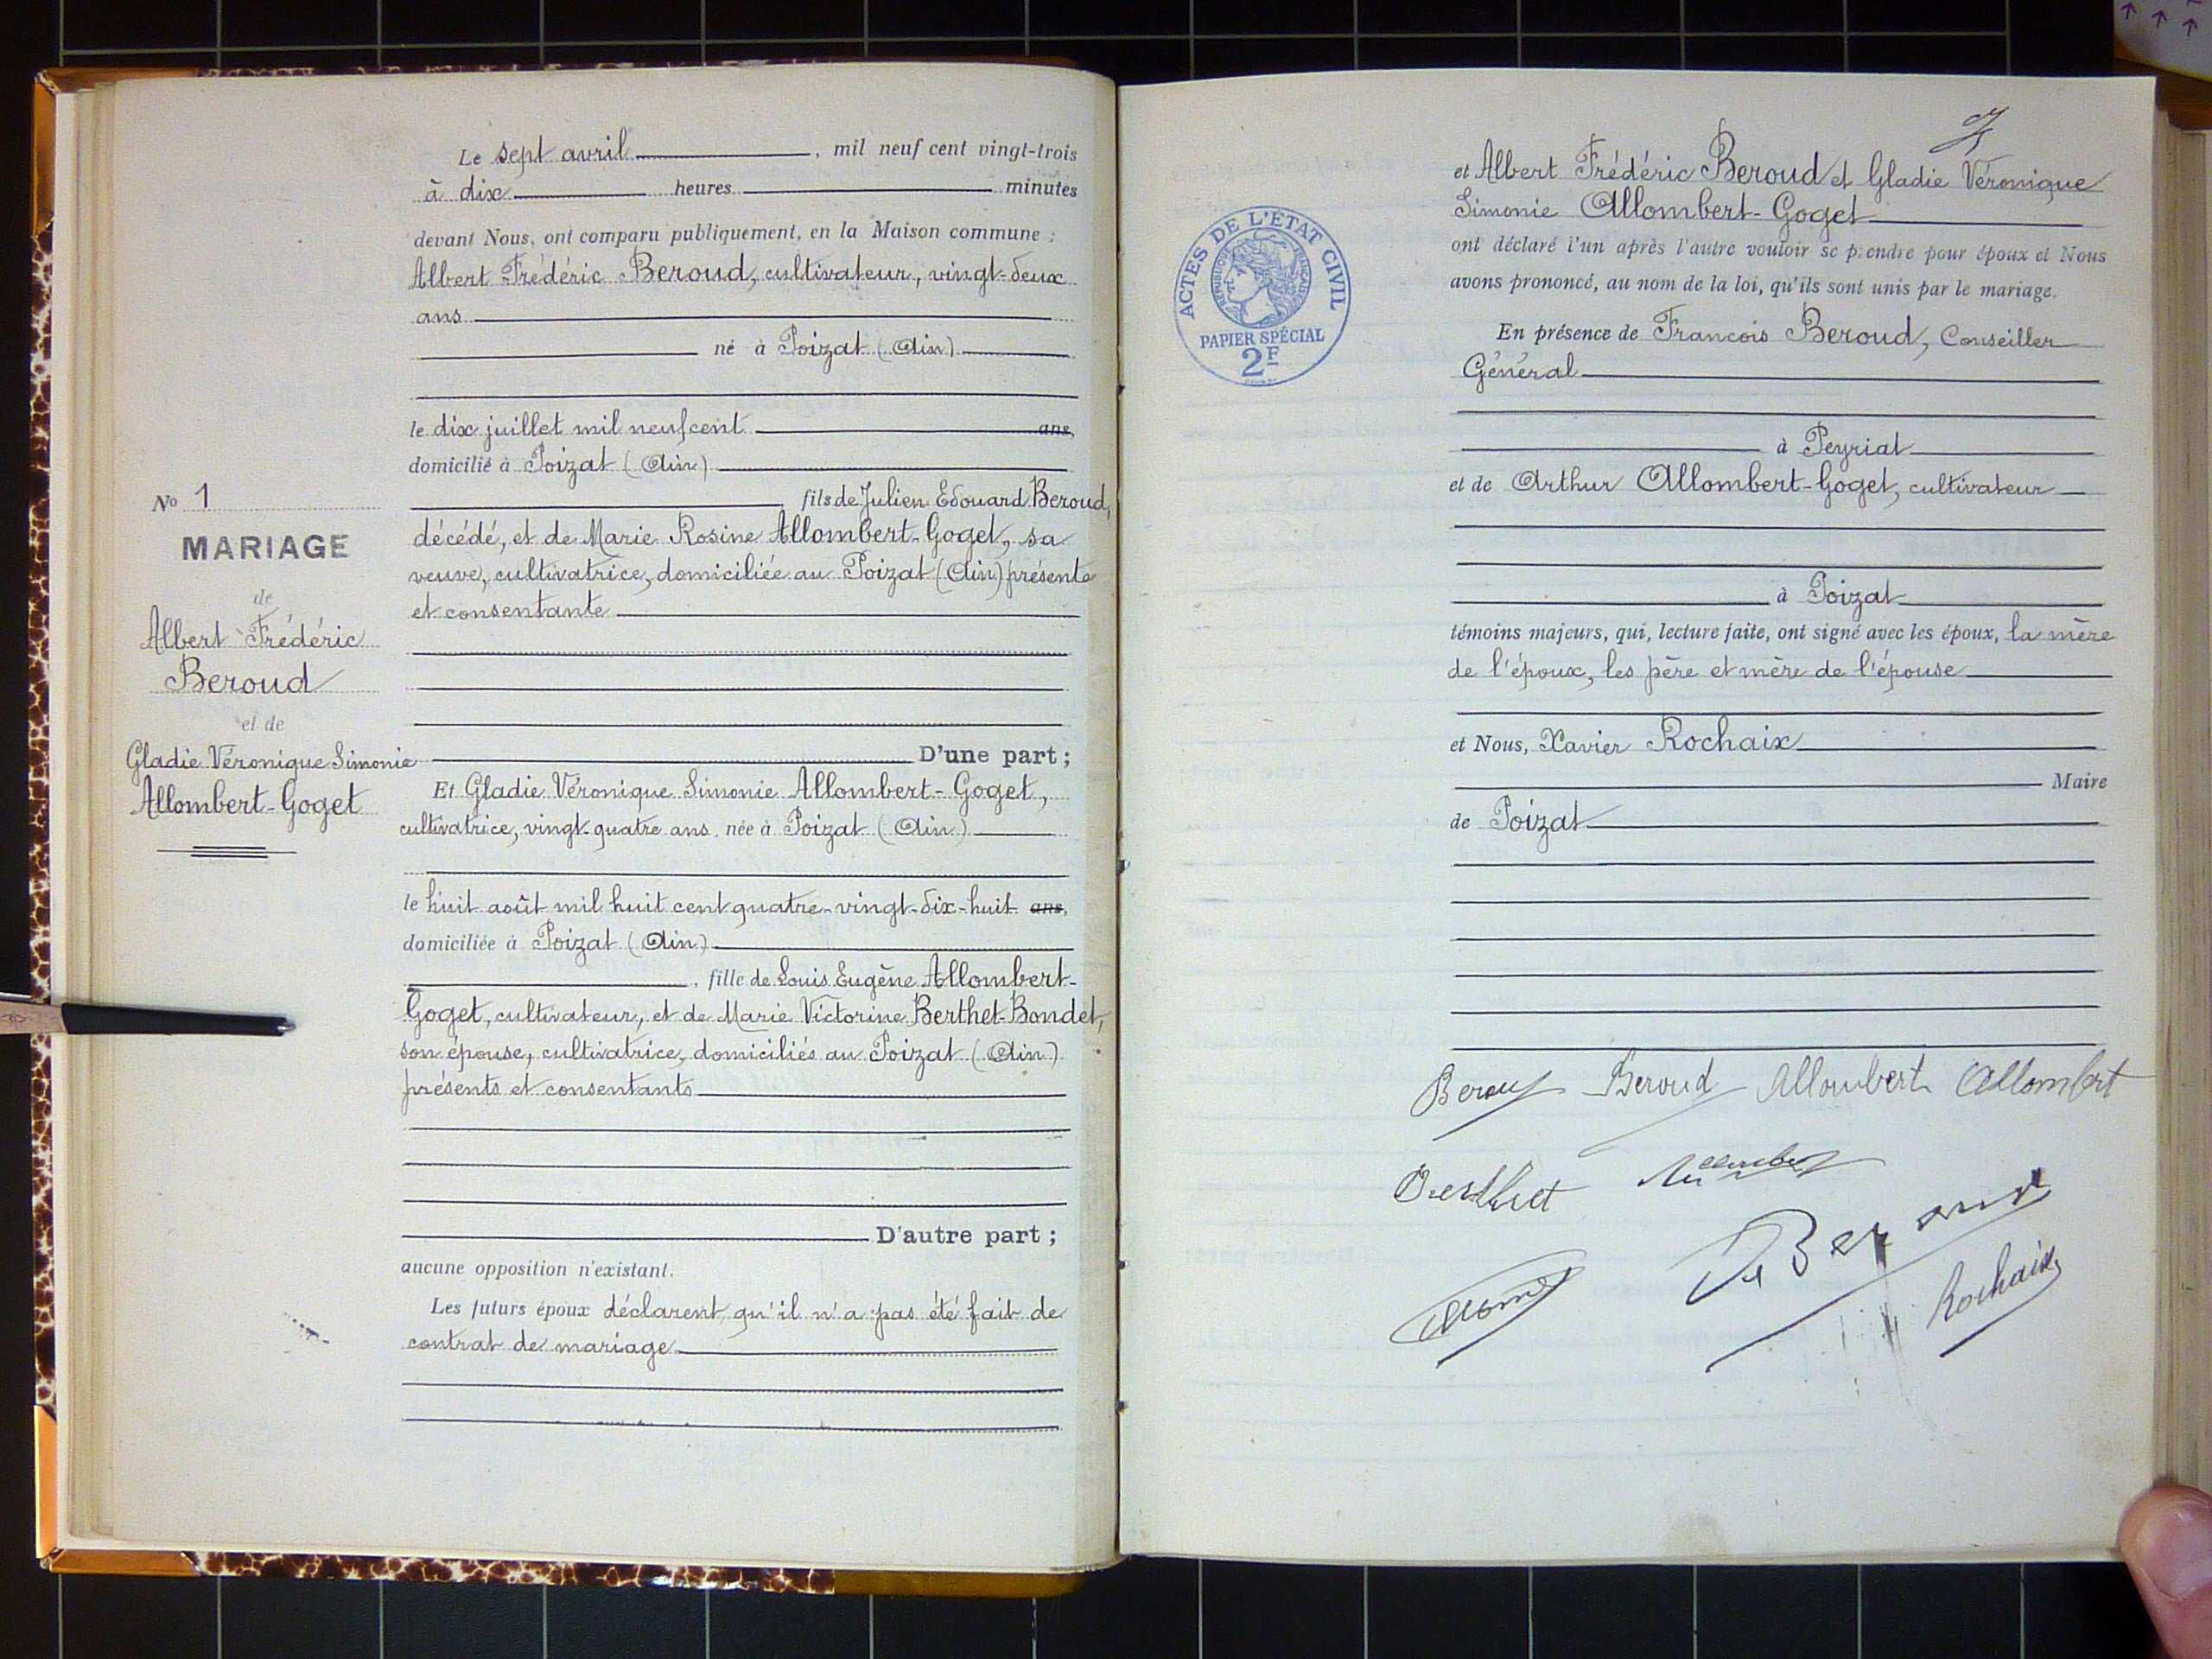 Le sept avril, mil neuf cent vingt-trois
à dix heures minutes
devant Nous, ont comparu publiquement, en la Maison commune :
Albert Frédéric Beroud, cultivateur, vingt-deux
ans
né à Poizat (Ain)
le dix juillet mil neuf cent ans,
domicilié à Poizat (Ain)
fils de Julien Edouard Beroud,
décédé, et de Marie Rosine Allombert-Goget, sa
veuve, cultivatrice, domiciliée au Poizat (Ain) présente
et consentante
No 1
MARIAGE
de
Albert Frédéric
Beroud
et de
Gladie Véronique Simonie
Allombert-Goget
D'une part ;
Et Gladie Véronique Simonie Allombert-Goget,
cultivatrice, vingt-quatre ans, née à Poizat (Ain)
le huit août mil huit cent quatre-vingt-dix-huit ans,
domiciliée à Poizat (Ain)
, fille de Louis Eugène Allombert-
Goget, cultivateur, et de Marie Victorine Berthet-Bondet,
son épouse, cultivatrice, domiciliés au Poizat (Ain)
présents et consentants
D'autre part ;
aucune opposition n'existant.
Les futurs époux déclarent qu'il n'a pas été fait de
contrat de mariage
ACTES DE L'ÉTAT CIVIL
RÉPUBLIQUE FRANÇAISE
PAPIER SPÉCIAL
2F
et Albert Frédéric Beroud et Gladie Véronique
Simonie Allombert-Goget
ont déclaré l'un après l'autre vouloir se prendre pour époux et Nous
avons prononcé, au nom de la loi, qu'ils sont unis par le mariage.
En présence de Francois Beroud, Conseiller
Général
à Peyriat
et de Arthur Allombert-Goget, cultivateur
à Poizat
témoins majeurs, qui, lecture faite, ont signé avec les époux, la mère
de l'époux, les père et mère de l'épouse
et Nous, Xavier Rochaix
Maire
de Poizat
Beroud Beroud Allombert Allombert
Berthet
Beroud
Rochaix